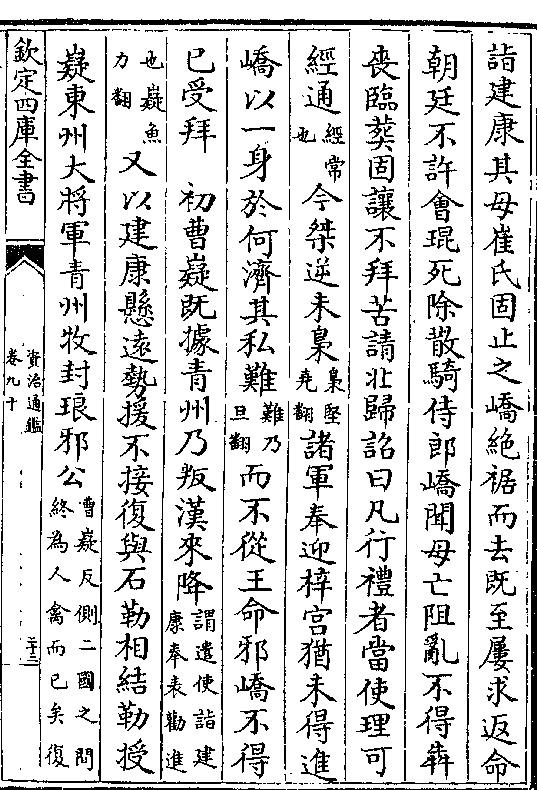 詣建康其母崔氏固止之嶠絶裾而去既至屢求返命
朝廷不許會琨死除散騎侍郎嶠聞母亡阻亂不得犇
喪臨葬固讓不拜苦請北歸詔曰凡行禮者當使理可
經通經常也今桀逆未梟梟堅堯翻諸軍奉迎梓宮猶未得進
嶠以一身於何濟其私難難乃旦翻而不從王命邪嶠不得
已受拜　初曹嶷既據青州乃叛漢來降謂遣使詣建康奉表勸進
也嶷魚力翻又以建康懸遠勢援不接復與石勒相結勒授
嶷東州大將軍青州牧封琅邪公曹嶷反側二國之間終為人禽而已矣復
欽定四庫全書
資治通鑑
卷九十
二十三